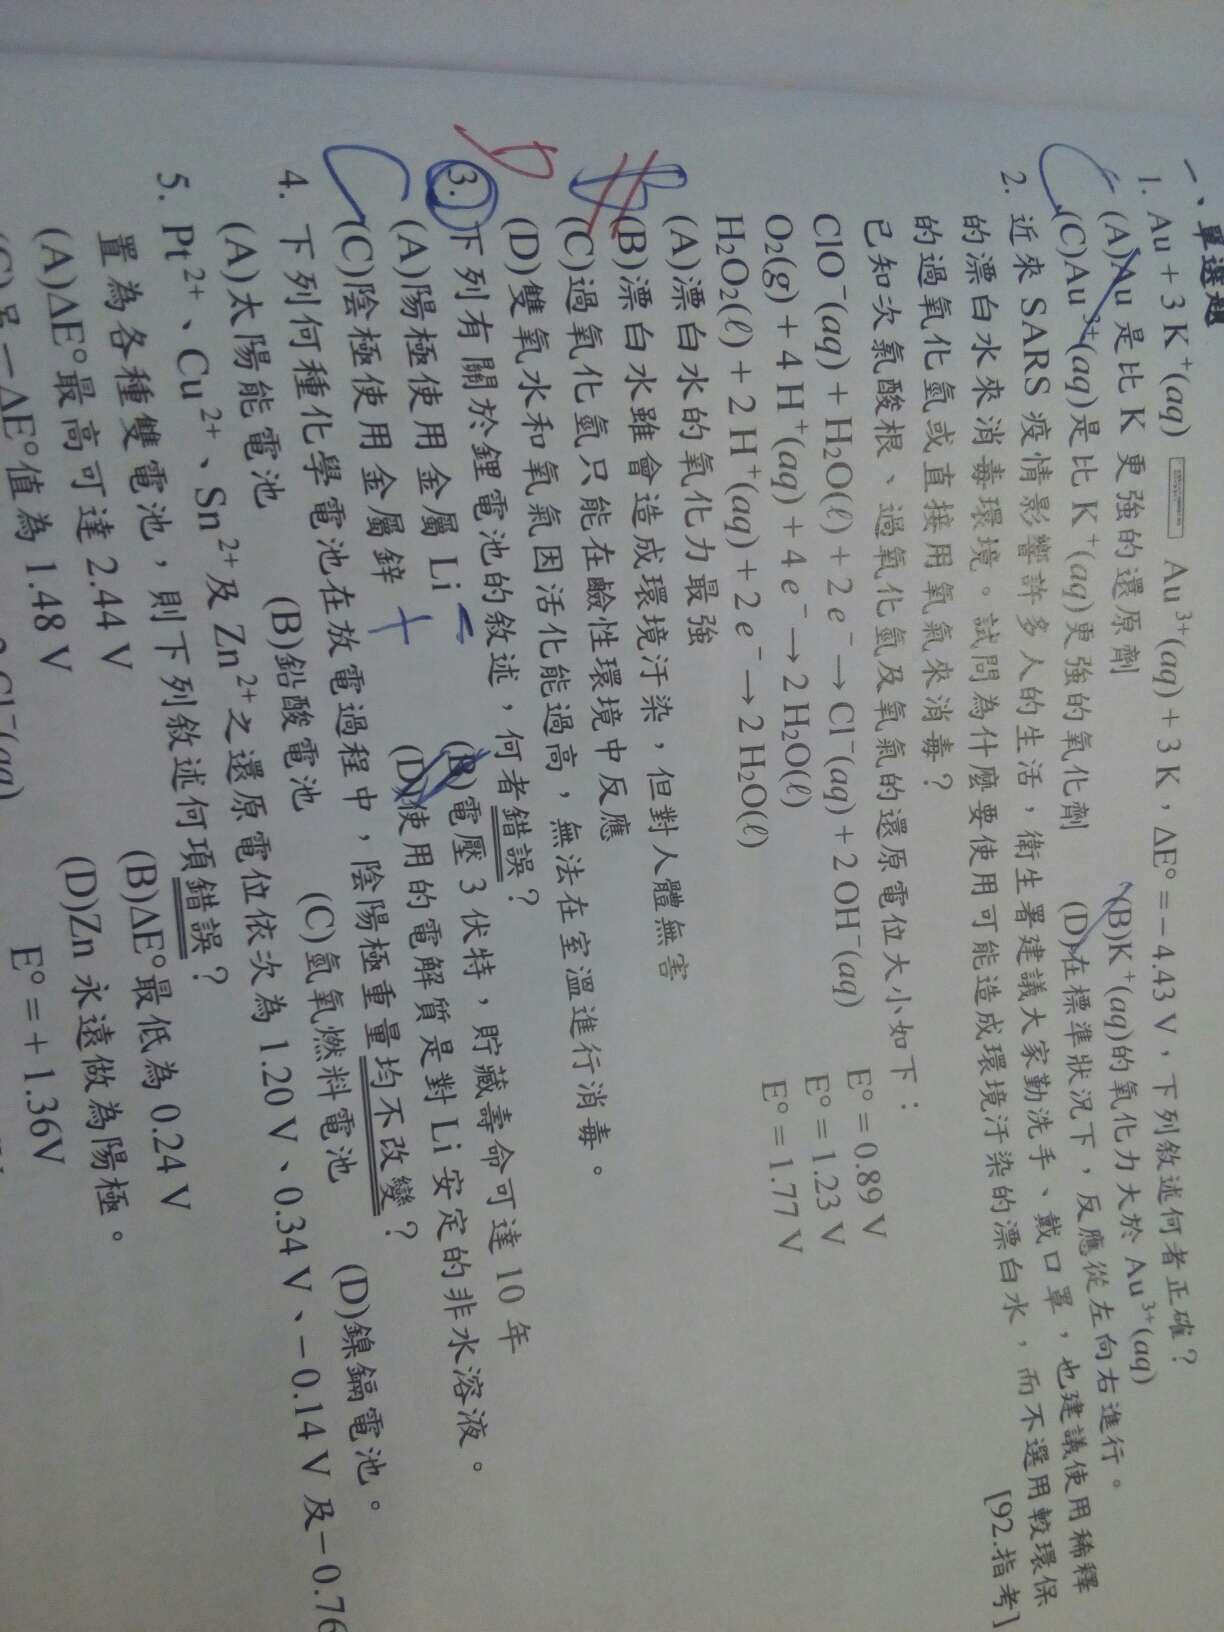 一、單選題
1. Au + 3 K⁺(aq) Au³⁺(aq) + 3 K，ΔE° = −4.43 V，下列敘述何者正確？
(A)Au 是比 K 更強的還原劑 (B)K⁺(aq)的氧化力大於 Au³⁺(aq)
(C)Au³⁺(aq)是比 K⁺(aq)更強的氧化劑 (D)在標準狀況下，反應從左向右進行。
2. 近來 SARS 疫情影響許多人的生活，衛生署建議大家勤洗手、戴口罩，也建議使用稀釋
的漂白水來消毒環境。試問為什麼要使用可能造成環境汙染的漂白水，而不選用較環保
的過氧化氫或直接用氧氣來消毒？ [92.指考]
已知次氯酸根、過氧化氫及氧氣的還原電位大小如下：
ClO⁻(aq) + H₂O(ℓ) + 2 e⁻ → Cl⁻(aq) + 2 OH⁻(aq) E° = 0.89 V
O₂(g) + 4 H⁺(aq) + 4 e⁻ → 2 H₂O(ℓ) E° = 1.23 V
H₂O₂(ℓ) + 2 H⁺(aq) + 2 e⁻ → 2 H₂O(ℓ) E° = 1.77 V
(A)漂白水的氧化力最強
(B)漂白水雖會造成環境汙染，但對人體無害
(C)過氧化氫只能在鹼性環境中反應
(D)雙氧水和氧氣因活化能過高，無法在室溫進行消毒。
3. 下列有關於鋰電池的敘述，何者錯誤？
(A)陽極使用金屬 Li − (B)電壓 3 伏特，貯藏壽命可達 10 年
(C)陰極使用金屬鋅 + (D)使用的電解質是對 Li 安定的非水溶液。
4. 下列何種化學電池在放電過程中，陰陽極重量均不改變？
(A)太陽能電池 (B)鉛酸電池 (C)氫氧燃料電池 (D)鎳鎘電池。
5. Pt²⁺、Cu²⁺、Sn²⁺及 Zn²⁺之還原電位依次為 1.20 V、0.34 V、−0.14 V 及−0.76
置為各種雙電池，則下列敘述何項錯誤？
(A)ΔE°最高可達 2.44 V (B)ΔE°最低為 0.24 V
值為 1.48 V (D)Zn 永遠做為陽極。
Cl⁻(aq) E° = + 1.36V